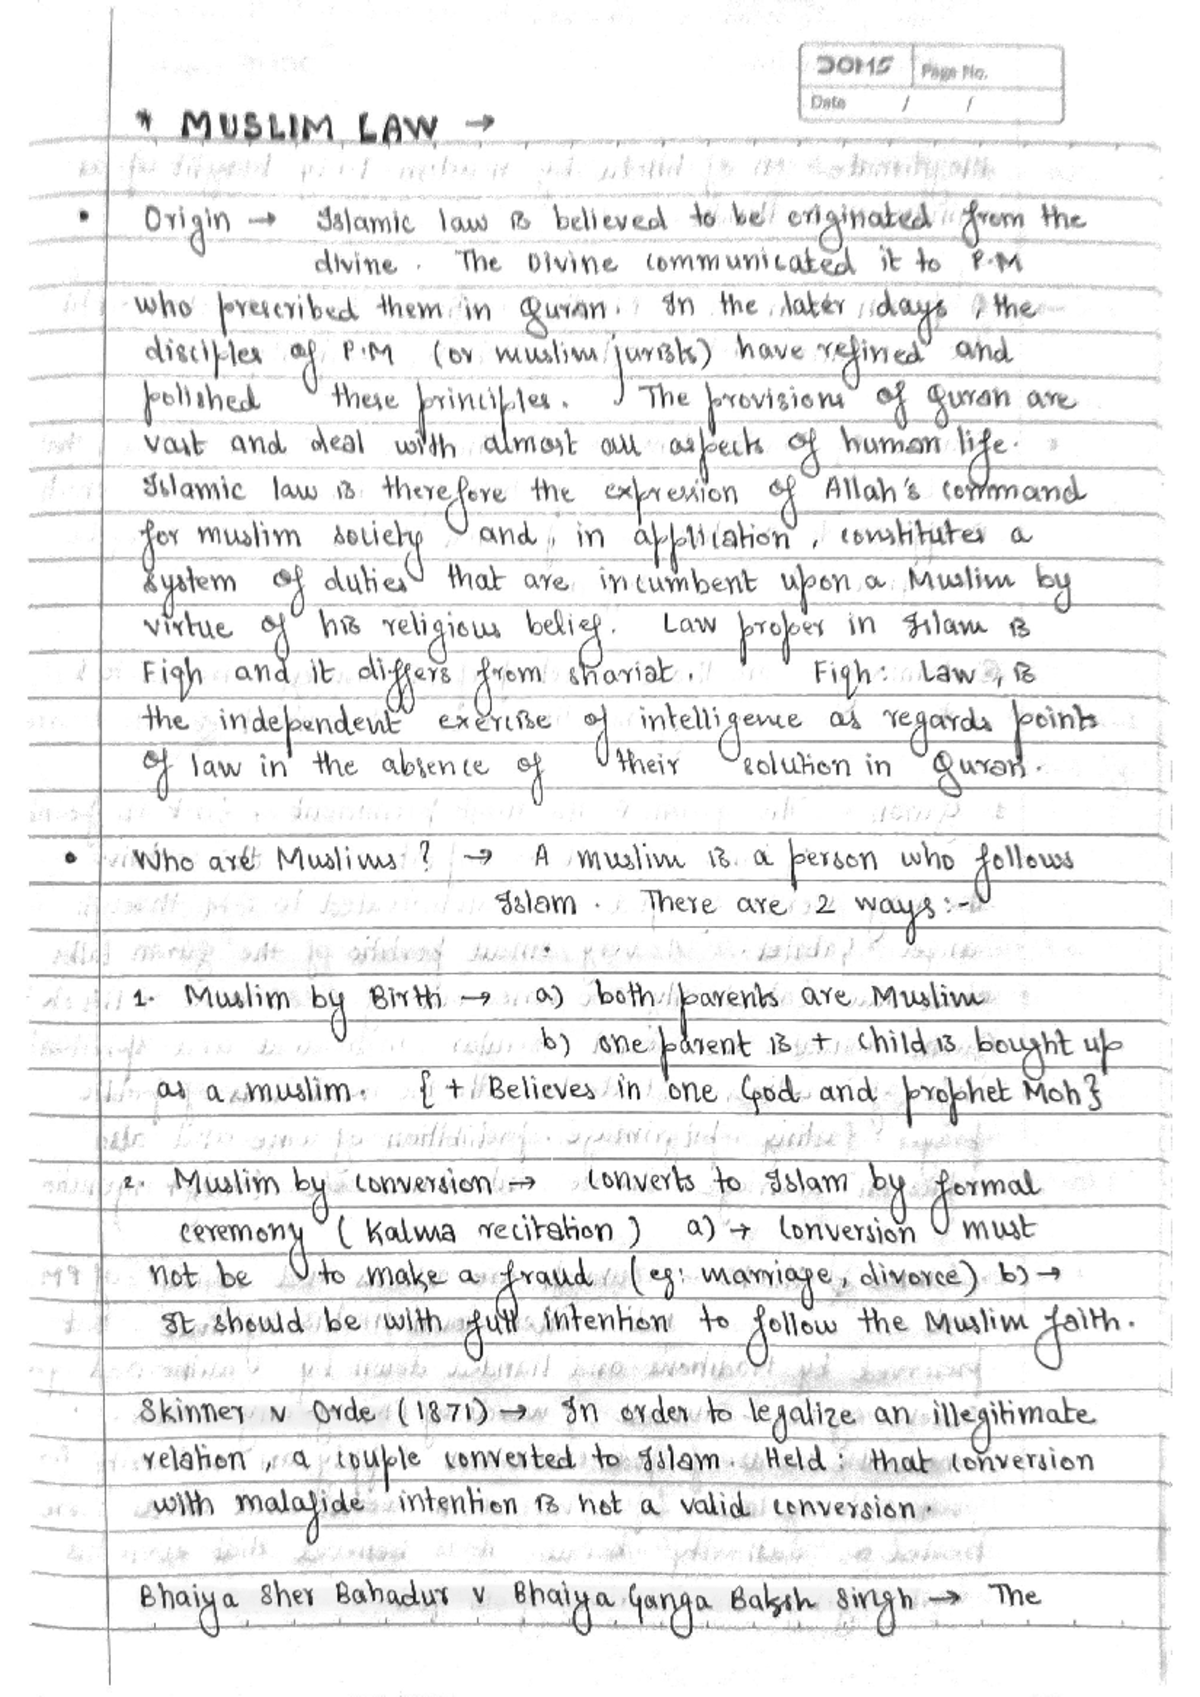 DOMS Page No.
Date / /
* MUSLIM LAW →
• Origin → Islamic law is believed to be originated from the
divine. The Divine communicated it to P.M
who prescribed them in Quran. In the later days, the
disciples of P.M (or muslim jurists) have refined and
polished these principles. The provisions of Quran are
vast and deal with almost all aspects of human life.
Islamic law is therefore the expression of Allah's command
for muslim society and, in application, constitutes a
system of duties that are incumbent upon a Muslim by
virtue of his religious belief. Law proper in Islam is
Fiqh and it differs from shariat. Fiqh: Law, is
the independent exercise of intelligence as regards points
of law in the absence of their solution in Quran.
• Who are Muslims? → A muslim is a person who follows
Islam. There are 2 ways :-
1. Muslim by Birth → a) both parents are Muslim
b) one parent is + child is bought up
as a muslim. { + Believes in one God and prophet Moh}
2. Muslim by conversion → converts to Islam by formal
ceremony (Kalma recitation) a) → Conversion must
not be to make a fraud (eg: marriage, divorce) b) →
It should be with full intention to follow the Muslim faith.
Skinner v Orde (1871) → In order to legalize an illegitimate
relation, a couple converted to Islam. Held: that conversion
with malafide intention is not a valid conversion.
Bhaiya Sher Bahadur v Bhaiya Ganga Baksh Singh → The